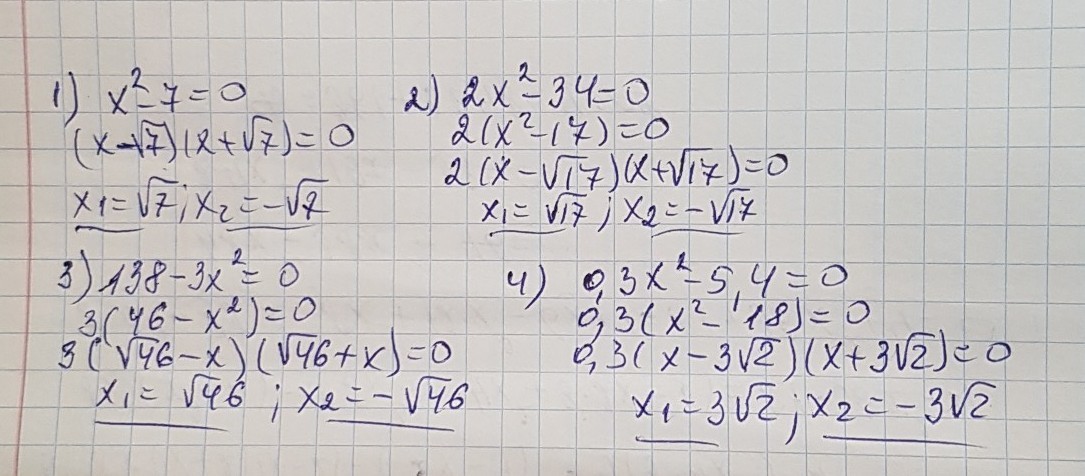 1) x²-7=0
(x-√7)(x+√7)=0
x₁=√7; x₂=-√7
2) 2x²-34=0
2(x²-17)=0
2(x-√17)(x+√17)=0
x₁=√17; x₂=-√17
3) 138-3x²=0
3(46-x²)=0
3(√46-x)(√46+x)=0
x₁=√46; x₂=-√46
4) 0,3x²-5,4=0
0,3(x²-18)=0
0,3(x-3√2)(x+3√2)=0
x₁=3√2; x₂=-3√2